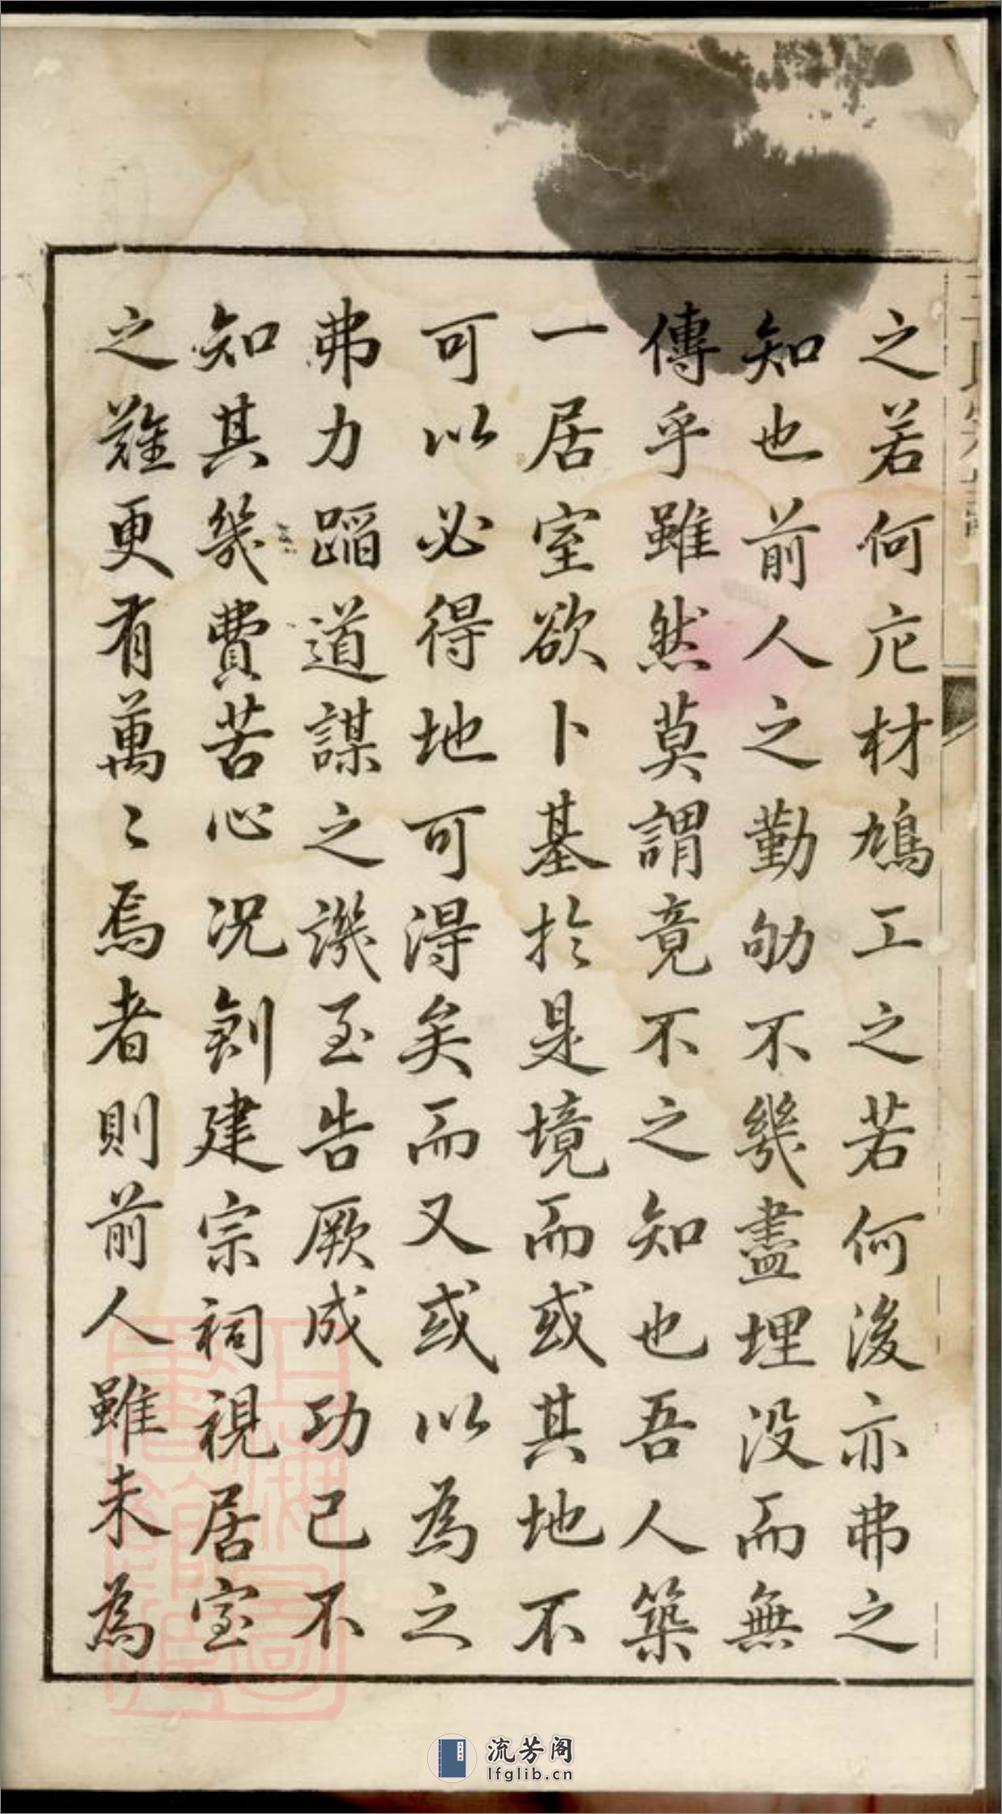 之若何庀材鳩工之若何後亦弗之
知也前人之勤劬不幾盡埋没而無
傳乎雖然莫謂竟不之知也吾人築
一居室欲卜基於是境而或其地不
可以必得地可得矣而又或以為之
弗力蹈道謀之譏至告厥成功已不
知其幾費苦心況創建宗祠視居室
之難更有萬〻焉者則前人雖未為
流芳阁
lfglib.cn